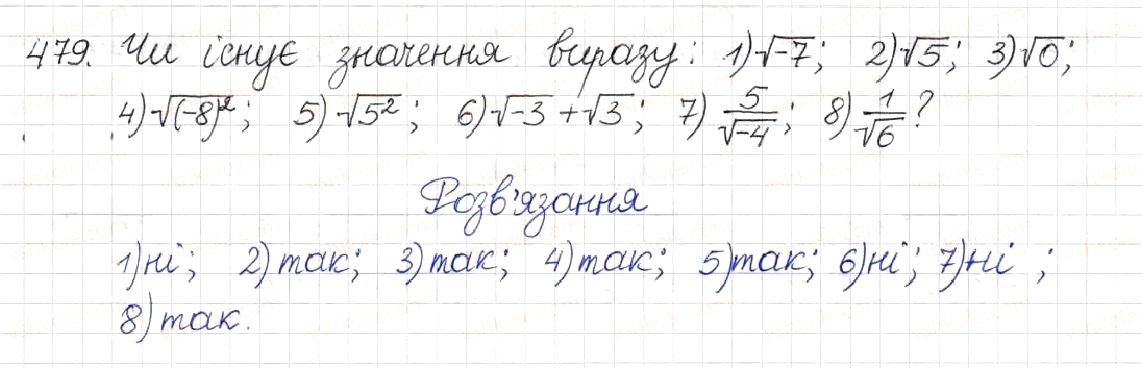 479. Чи існує значення виразу: 1)√-7; 2)√5; 3)√0;
4)√(-8)²; 5)√5²; 6)√-3+√3; 7) 5/√-4; 8) 1/√6?
Розв'язання
1)ні; 2)так; 3)так; 4)так; 5)так; 6)ні; 7)ні ;
8)так.